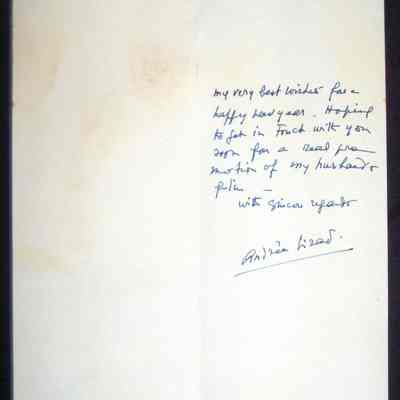 my very best wishes for a
happy new year. Hoping
to get in Touch with you
soon for a real pro
motion of my husband's
film —
with sincere regards
Andrée